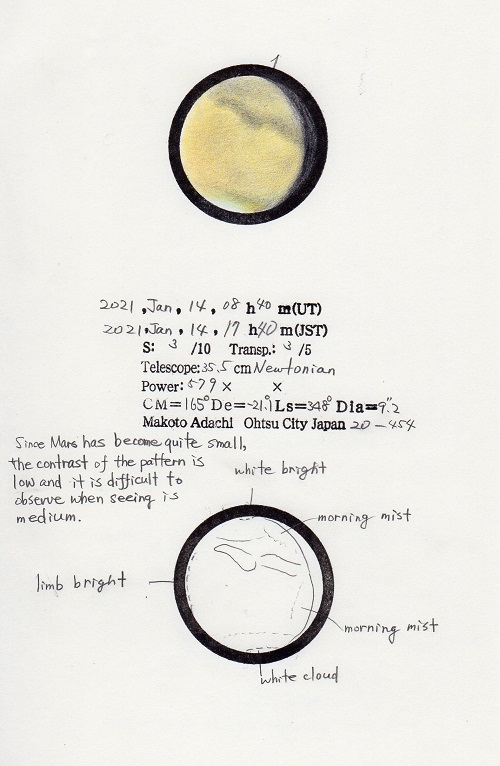 1
2021, Jan, 14, 08 h 40 m(UT)
2021, Jan, 14, 17 h 40 m(JST)
S: 3 /10 Transp.: 3 /5
Telescope: 35.5 cm Newtonian
Power: 579 × ×
CM=165° De=-21.1 Ls=348° Dia=9".2
Makoto Adachi Ohtsu City Japan 20-454
Since Mars has become quite small,
the contrast of the pattern is
low and it is difficult to
observe when seeing is
medium.
white bright
morning mist
limb bright
morning mist
white cloud